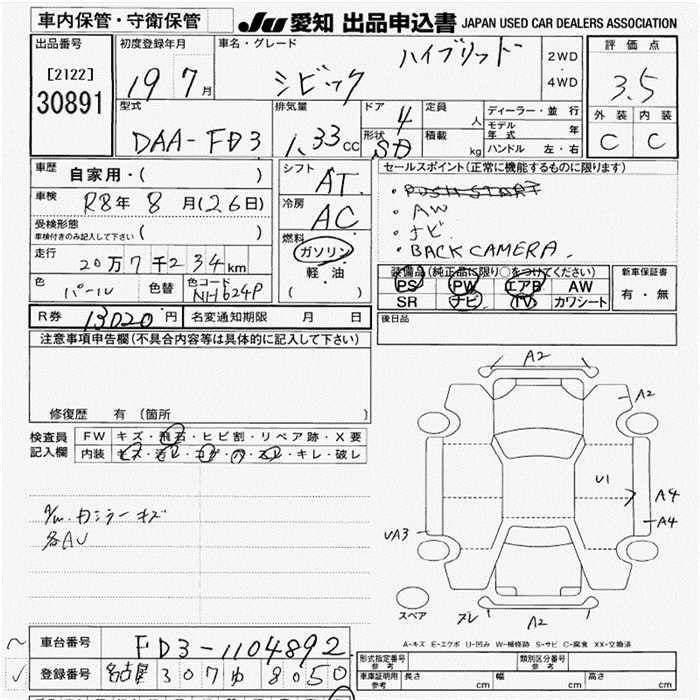 車内保管・守衛保管
JU 愛知 出品申込書 JAPAN USED CAR DEALERS ASSOCIATION
出品番号
[2122]
30891
初度登録年月
19 7 月
車名・グレード
シビック ハイブリット
2WD
・
4WD
評価点
3.5
外装 内装
C C
型式
DAA-FD3
排気量
1.33cc
ドア 4
形状 SD
定員 人
積載 kg
ディーラー・並行
モデル年式 年
ハンドル 左・右
車歴
自家用・( )
車検 R8年 8月(26日)
受検形態
車検付きのみ記入して下さい ( )
走行 20万7千234km
色 パール 色替 色コード NH624P
シフト AT
冷房 AC
燃料
ガソリン
軽油
( )
セールスポイント(正常に機能するものに限ります)
・PUSH START
・AW
・ナビ
・BACK CAMERA.
装備品(純正品に限り○をつけてください)
PS PW エアB AW
SR ナビ TV カワシート
新車保証書
有・無
R券 13020円 名変通知期限 月 日
後日品
注意事項申告欄(不具合内容等は具体的に記入して下さい)
修復歴 有(箇所 )
検査員記入欄
FW キズ・飛石・ヒビ割・リペア跡・X要
内装 キズ・汚レ・コゲ・穴・スレ・キレ・破レ
カミラーキズ
各AU
A2
A2
U1
A4
A4
UA3
スペア
ズレ
A2
A-キズ E-エクボ U-凹み W-補修跡 S-サビ C-腐食 XX-交換済
車台番号 FD3-1104892
登録番号 名古屋 307 ゆ 8050
型式指定番号 参考
類別区分番号 参考
車庫証明用 参考 長さ cm 幅 cm 高さ cm